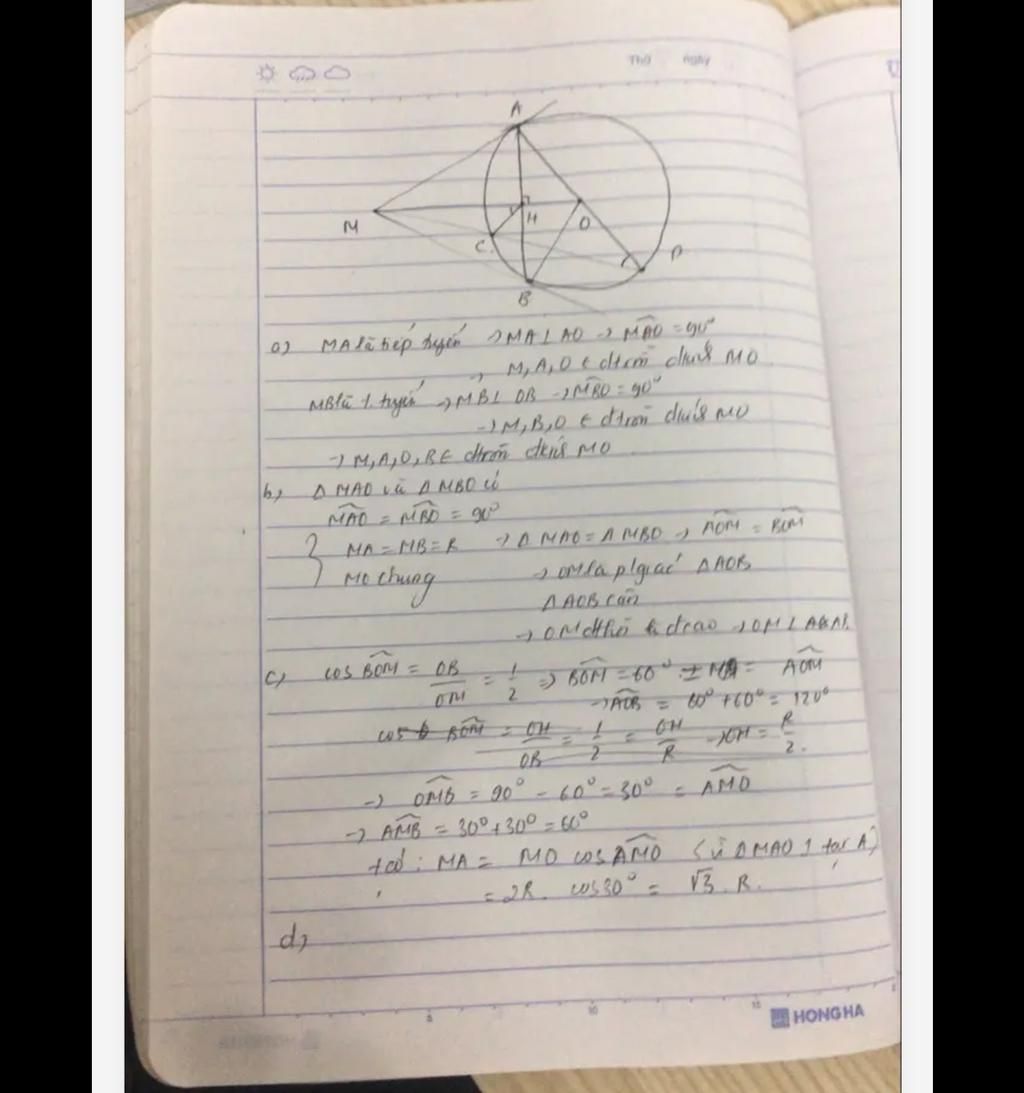 Thứ ngày
A
M
H
O
C
D
B
a) MA là tiếp tuyến → MA ⊥ AO → \widehat{MAO} = 90°
→ M, A, O ∈ đtròn đkính MO
MB là t. tuyến → MB ⊥ OB → \widehat{MBO} = 90°
→ M, B, O ∈ đtròn đkính MO
→ M, A, O, B ∈ đtròn đkính MO
b) Δ MAO và Δ MBO có
\widehat{MAO} = \widehat{MBO} = 90°
MA = MB = R → Δ MAO = Δ MBO → \widehat{AOM} = \widehat{BOM}
MO chung → OM là p/giác ΔAOB
ΔAOB cân
→ OM đthời là đcao → OM ⊥
c) cos \widehat{BOM} = OB/OM = 1/2 ⇒ \widehat{BOM} = 60° = \widehat{AOM}
→ \widehat{AOB} = 60° + 60° = 120°
cos \widehat{BOM} = OH/OB = 1/2 = OH/R → OH = R/2.
→ \widehat{OMB} = 90° - 60° = 30° = \widehat{AMO}
→ \widehat{AMB} = 30° + 30° = 60°
+ có: MA = MO cos \widehat{AMO} (vì ΔMAO ⊥ tại A)
= 2R. cos30° = √3. R.
d)
5 10 15
HONG HA